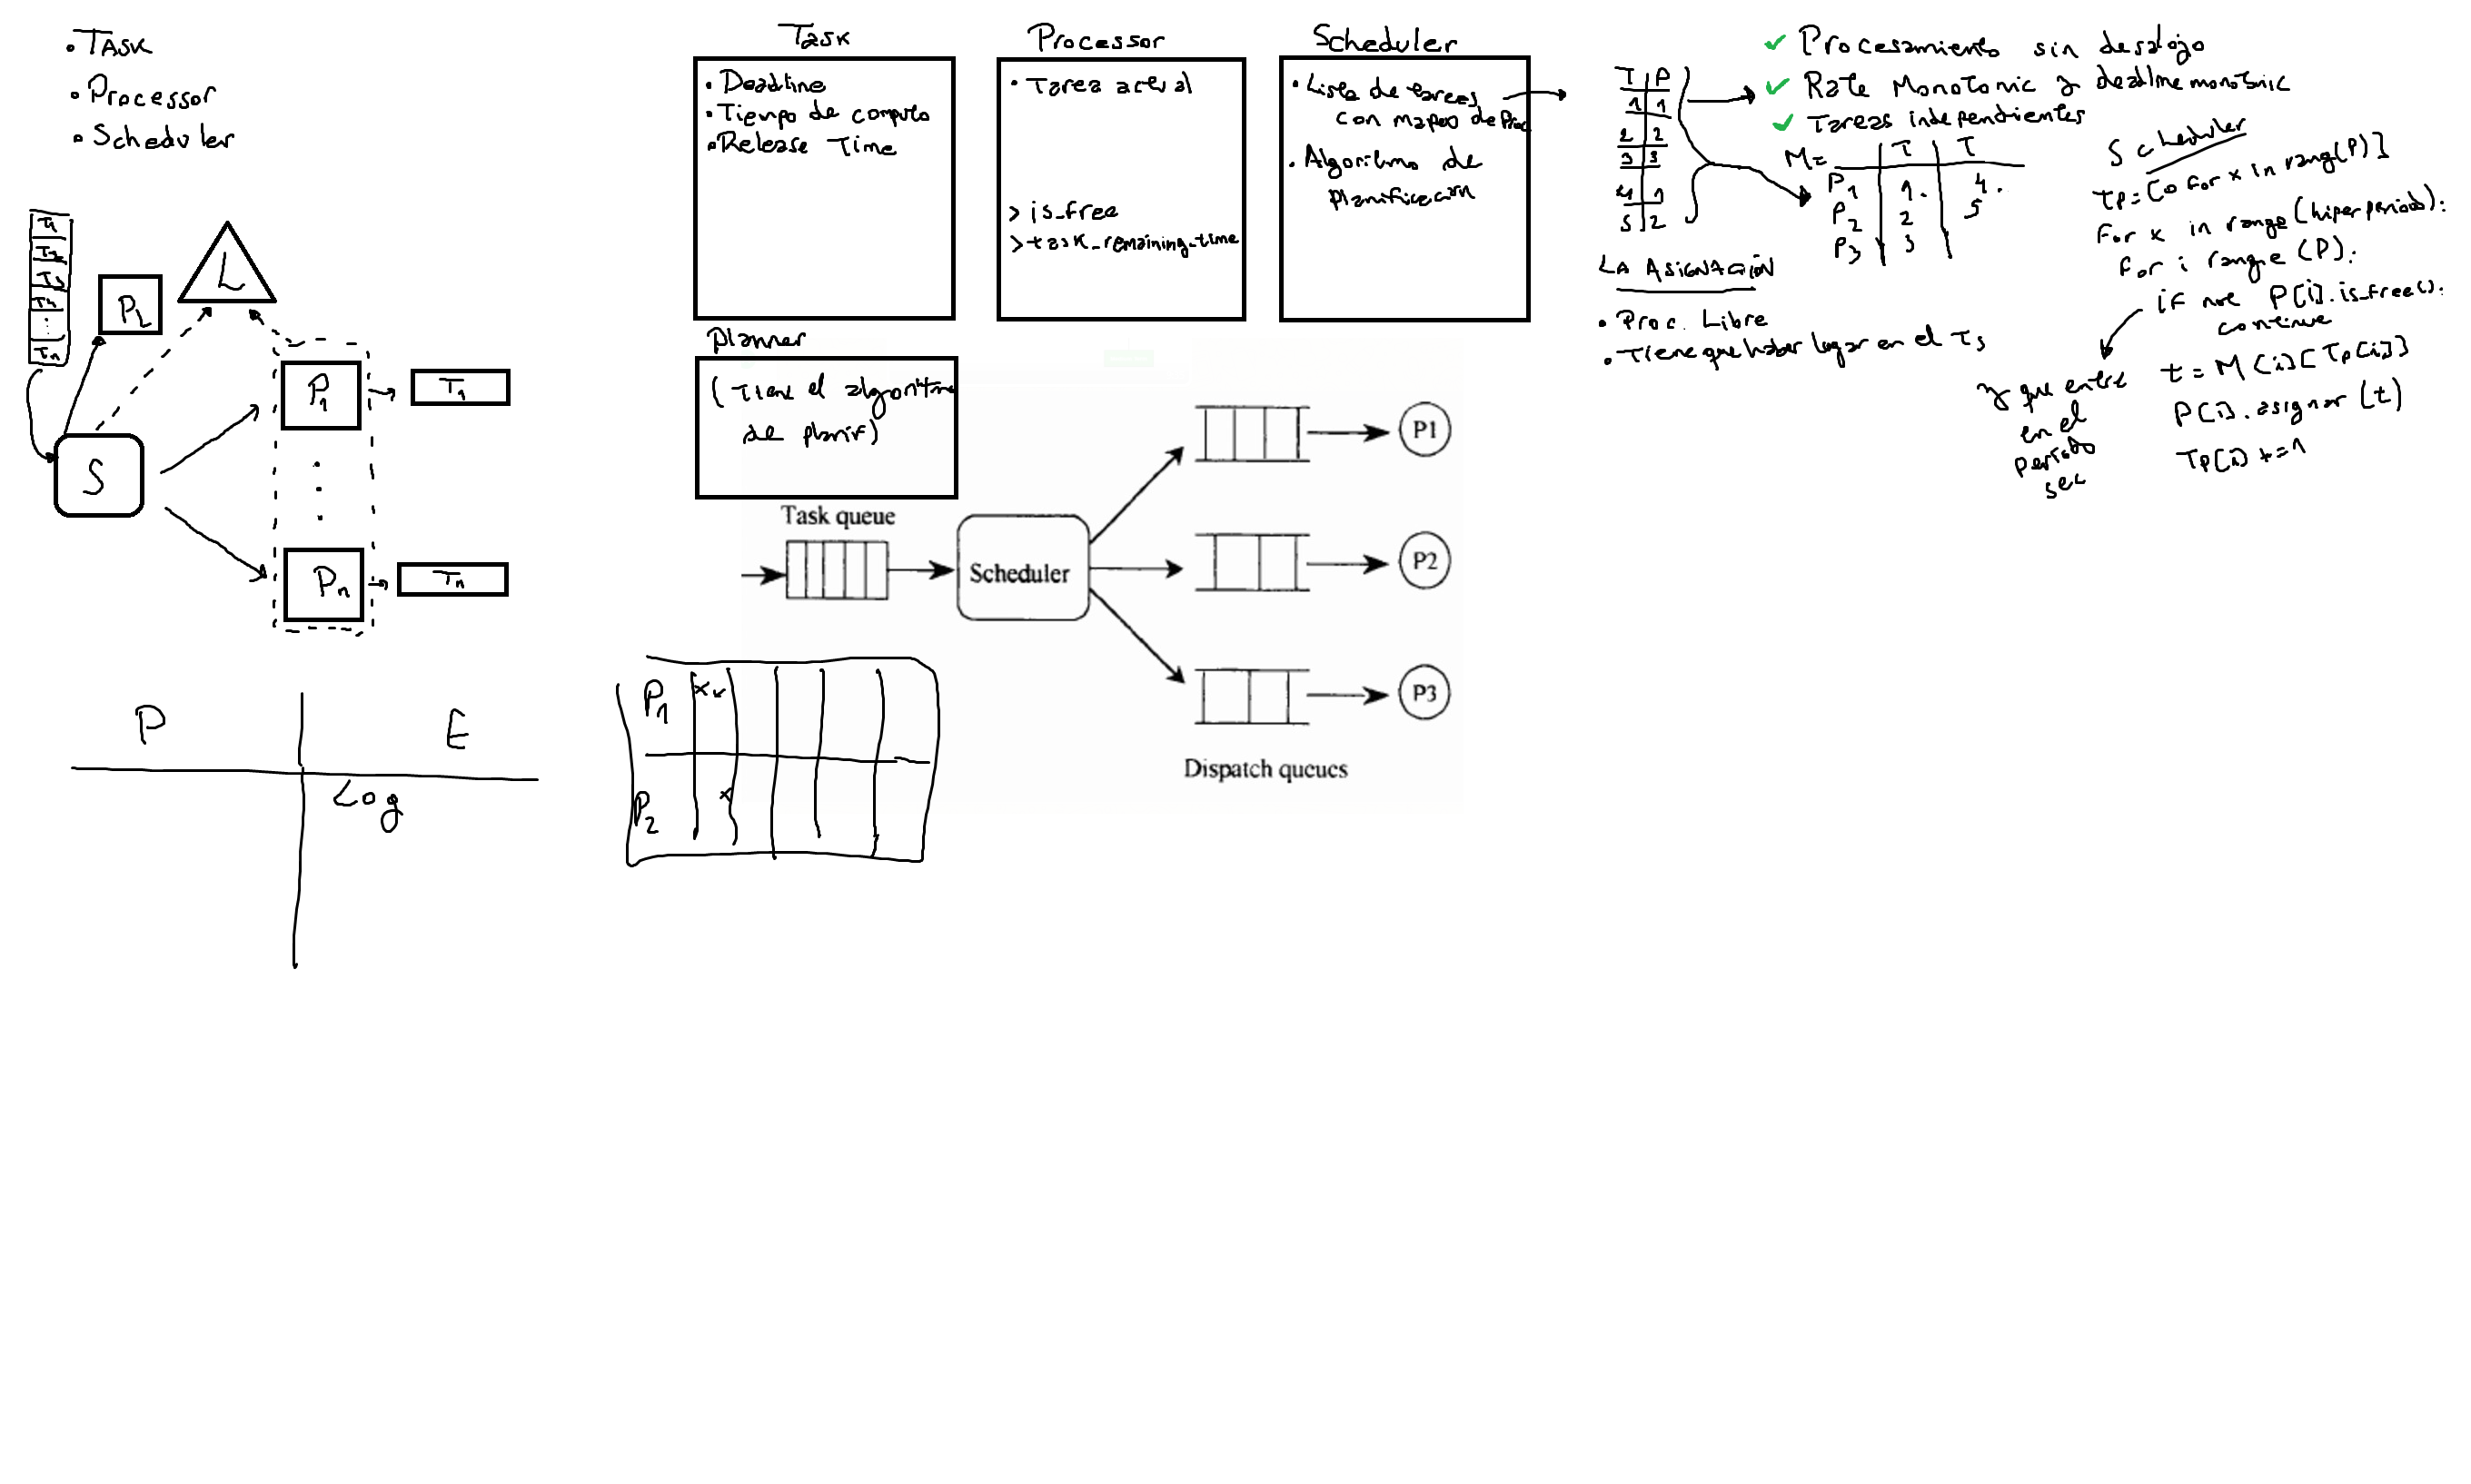 • TASK
• Processor
• Scheduler
T1
T2
T3
T4
⋮
Tn
PL
L
S
P1
T1
Pn
Tn
P
E
Log
Task
• Deadline
• Tiempo de computo
• Release Time
Processor
• Tarea actual
> is_free
> task_remaining_time
Scheduler
• Lista de tareas
con mapeo de Proc
• Algoritmo de
planificación
Planner
(Tiene el algoritmo
de planif)
Task queue
Scheduler
P1
P2
P3
Dispatch queues
P1 x
P2 x
T P
1 1
2 2
3 3
4 1
5 2
✓ Procesamiento sin desalojo
✓ Rate Monotonic y deadline monotonic
✓ Tareas independientes
M= T T
P1 1. 4.
P2 2 5
P3 3
LA ASIGNACIÓN
• Proc. Libre
• Tiene que haber lugar en el TS
Scheduler
TP = [0 for x in rang(P)]
For x in range (hiperperiodo):
For i range (P):
if not P[i].is_free():
continue
t = M[i][TP[i]]
P[i].asignar(t)
TP[i] += 1
y que entre
en el
periodo
sec